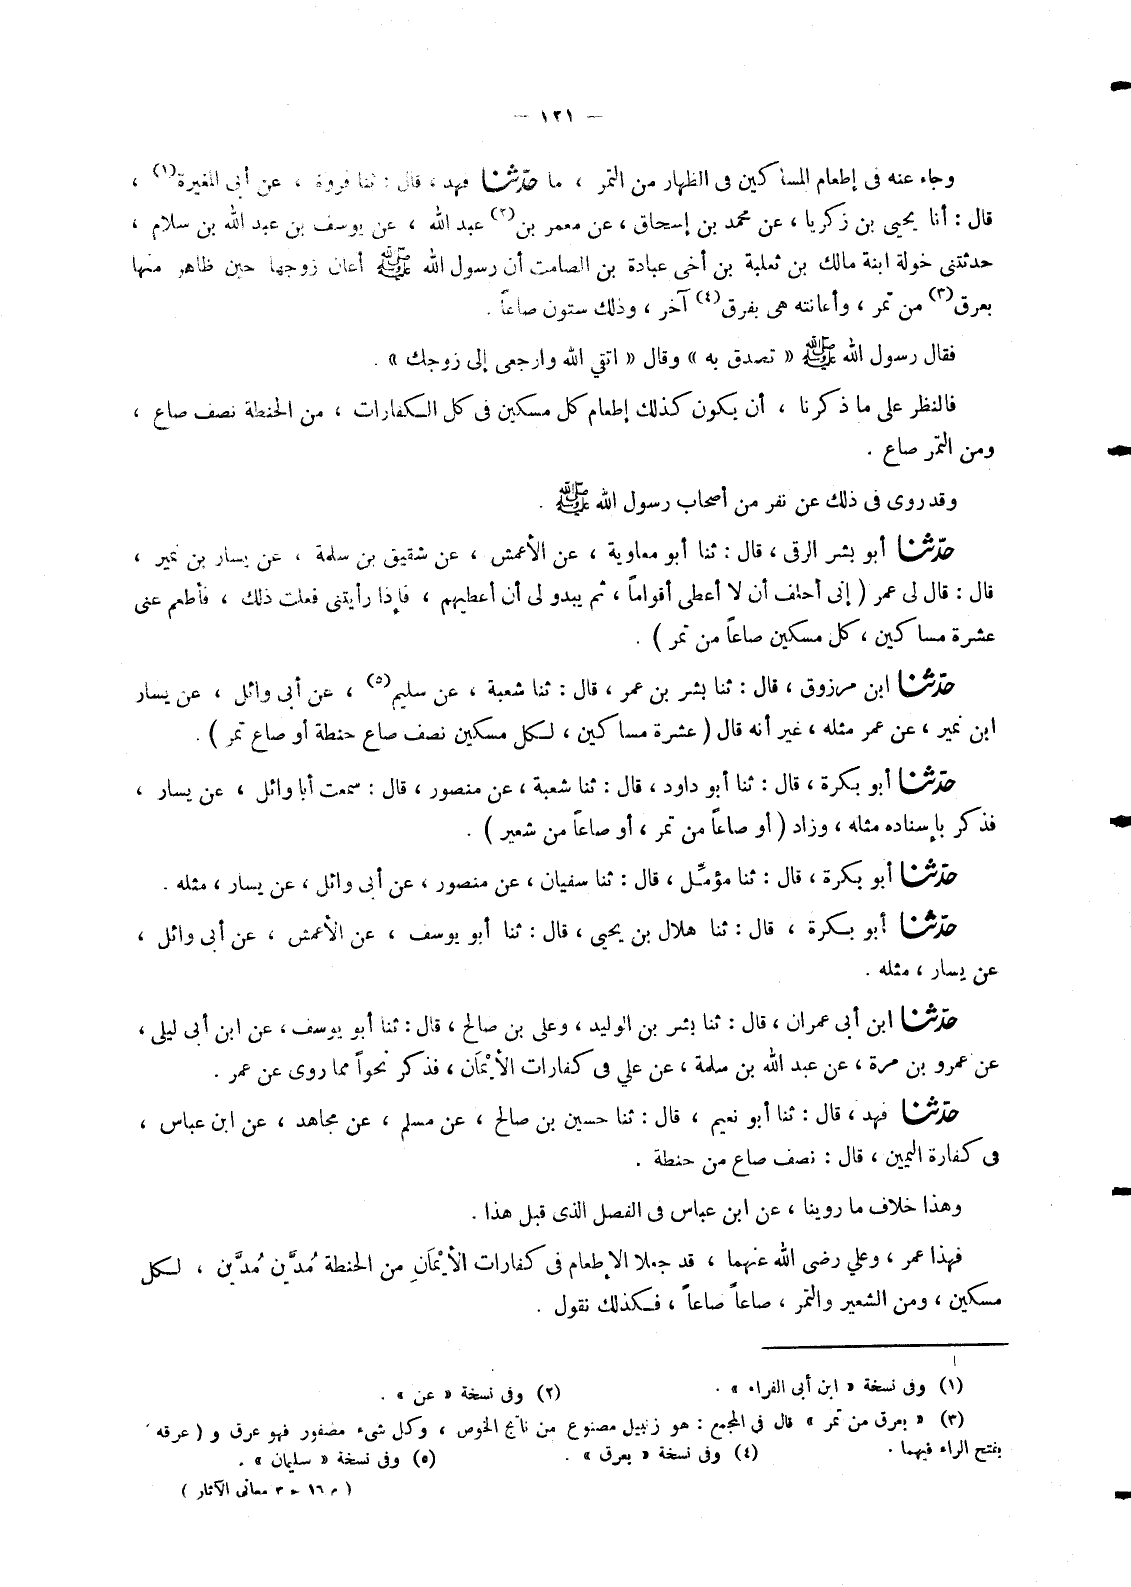 — ١٢١ —
وجاء عنه فى إطعام المساكين فى الظهار من التمر ، ما حدّثنا فهد ، قال : ثنا فروة ، عن أبى المغيرة(١) ،
قال : أنا يحيى بن زكريا ، عن محمد بن إسحاق ، عن معمر بن(٢) عبد الله ، عن يوسف بن عبد الله بن سلام ،
حدثتنى خولة ابنة مالك بن ثعلبة بن أخى عبادة بن الصامت أن رسول الله ﷺ أعان زوجها حين ظاهر منها
بعرق(٣) من تمر ، وأعانته هى بفرق(٤) آخر ، وذلك ستون صاعاً .
فقال رسول الله ﷺ « تصدق به » وقال « اتقي الله وارجعى إلى زوجك » .
فالنظر على ما ذكرنا ، أن يكون كذلك إطعام كل مسكين فى كل الكفارات ، من الحنطة نصف صاع ،
ومن التمر صاع .
وقد روى فى ذلك عن نفر من أصحاب رسول الله ﷺ .
حدّثنا أبو بشر الرقى ، قال : ثنا أبو معاوية ، عن الأعمش ، عن شقيق بن سلمة ، عن يسار بن نمير ،
قال : قال لى عمر ( إنى أحلف أن لا أعطى أقواماً ، ثم يبدو لى أن أعطيهم ، فإذا رأيتنى فعلت ذلك ، فأطعم عنى
عشرة مساكين ، كل مسكين صاعاً من تمر ) .
حدّثنا ابن مرزوق ، قال : ثنا بشر بن عمر ، قال : ثنا شعبة ، عن سليم(٥) ، عن أبى وائل ، عن يسار
ابن نمير ، عن عمر مثله ، غير أنه قال ( عشرة مساكين ، لكل مسكين نصف صاع حنطة أو صاع تمر ) .
حدّثنا أبو بكرة ، قال : ثنا أبو داود ، قال : ثنا شعبة ، عن منصور ، قال : سمعت أبا وائل ، عن يسار ،
فذكر بإسناده مثله ، وزاد ( أو صاعاً من تمر ، أو صاعاً من شعير ) .
حدّثنا أبو بكرة ، قال : ثنا مؤمّل ، قال : ثنا سفيان ، عن منصور ، عن أبى وائل ، عن يسار ، مثله .
حدّثنا أبو بكرة ، قال : ثنا هلال بن يحيى ، قال : ثنا أبو يوسف ، عن الأعمش ، عن أبى وائل ،
عن يسار ، مثله .
حدّثنا ابن أبى عمران ، قال : ثنا بشر بن الوليد ، وعلى بن صالح ، قال : ثنا أبو يوسف ، عن ابن أبى ليلى ،
عن عمرو بن مرة ، عن عبد الله بن سلمة ، عن علي فى كفارات الأيْمَان ، فذكر نحواً مما روى عن عمر .
حدّثنا فهد ، قال : ثنا أبو نعيم ، قال : ثنا حسين بن صالح ، عن مسلم ، عن مجاهد ، عن ابن عباس ،
فى كفارة اليمين ، قال : نصف صاع من حنطة .
وهذا خلاف ما روينا ، عن ابن عباس فى الفصل الذى قبل هذا .
فهذا عمر ، وعلي رضى الله عنهما ، قد جعلا الإطعام فى كفارات الأيْمَانِ من الحنطة مُدَّين مُدَّين ، لكل
مسكين ، ومن الشعير والتمر ، صاعاً صاعاً ، فكذلك نقول .
(١) وفى نسخة « ابن أبى الفراء » . (٢) وفى نسخة « عن » .
(٣) « بعرق من تمر » قال في المجمع : هو زنبيل مصنوع من نانج الخوص ، وكل شىء مضفور فهو عرق و ( عرقه
بفتح الراء فيهما . (٤) وفى نسخة « بعرق » . (٥) وفى نسخة « سليمان » .
( م ١٦ - ٣ معانى الآثار )